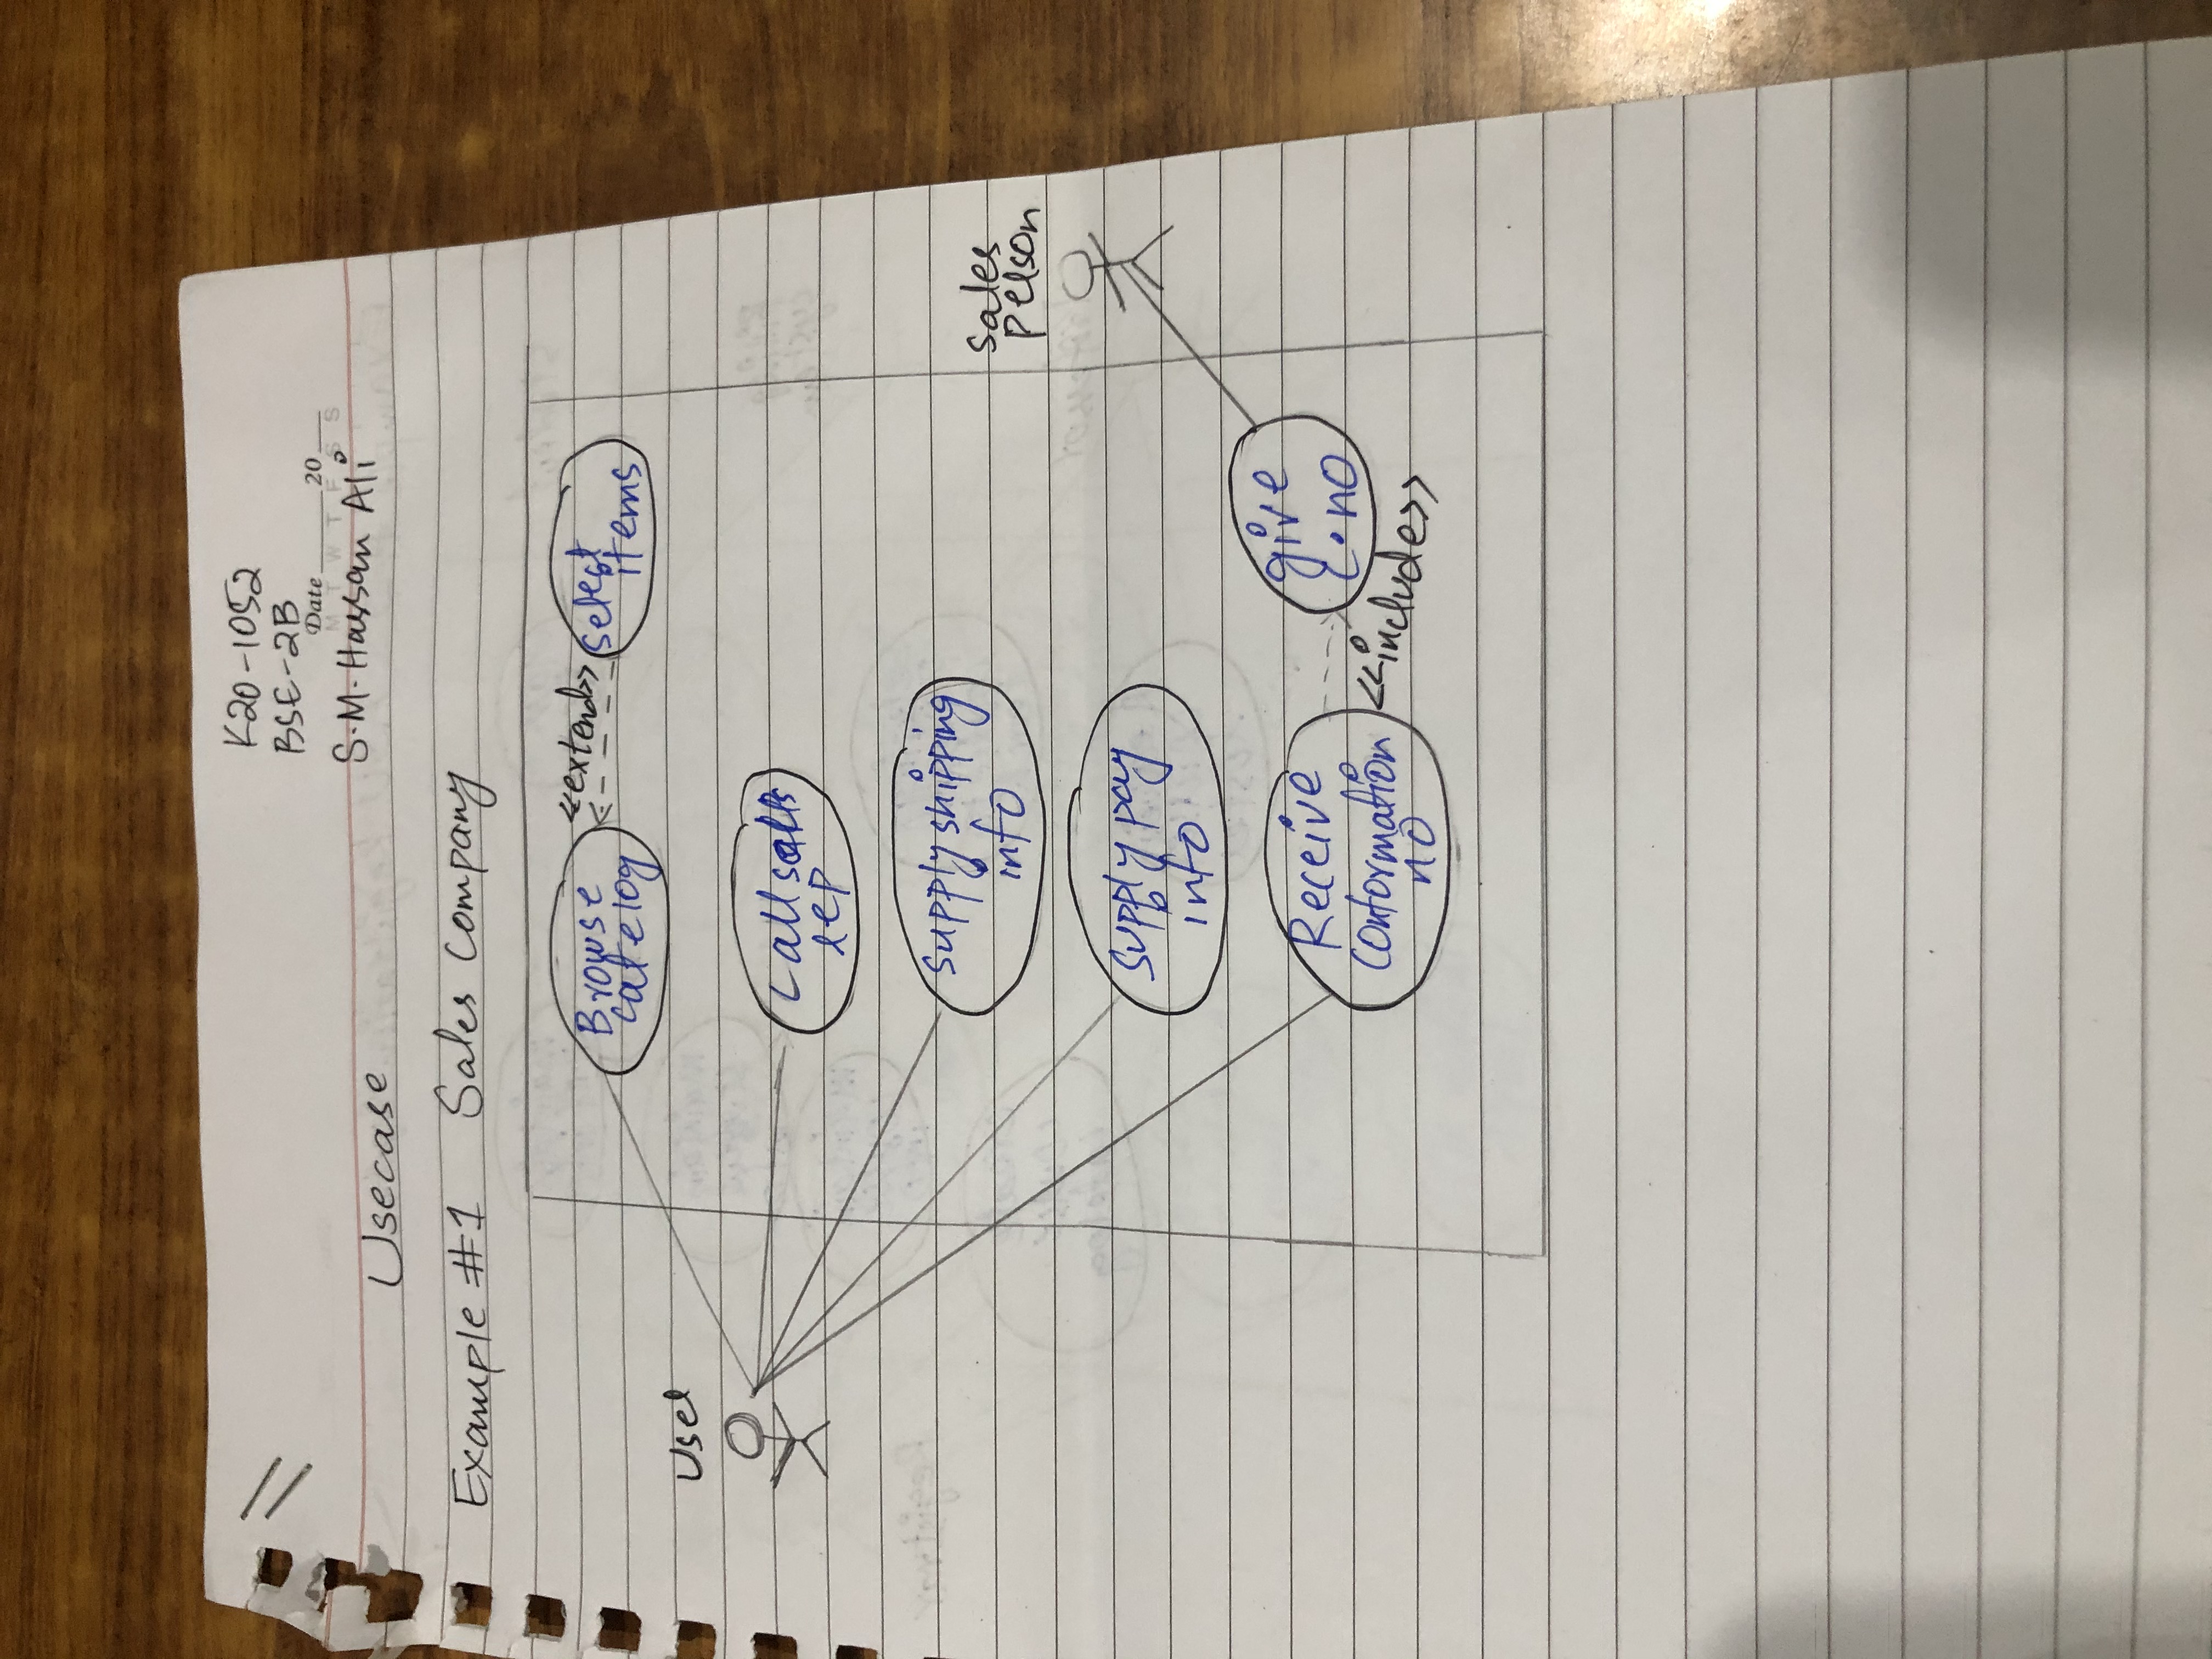 K20-1052
BSE-2B
Date 20
M T W T F S S
S.M. Hassan Ali
Usecase
Example #1 Sales Company
Browse
catelog
<<extend>>
Select
items
User
Call sales
rep
Supply shipping
info
Sales
person
Supply pay
info
Receive
Conformation
no
give
C. no
<<include>>